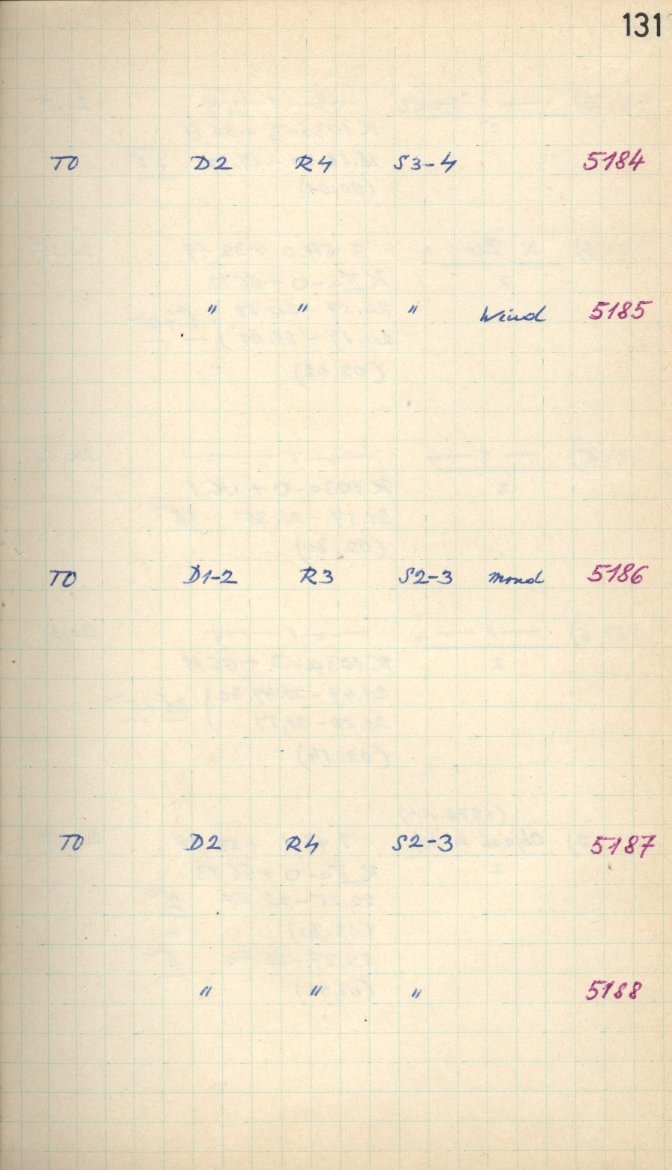 131
TO D2 R4 S3-4 5184
" " " Wind 5185
TO D1-2 R3 S2-3 Mond 5186
TO D2 R4 S2-3 5187
" " " 5188